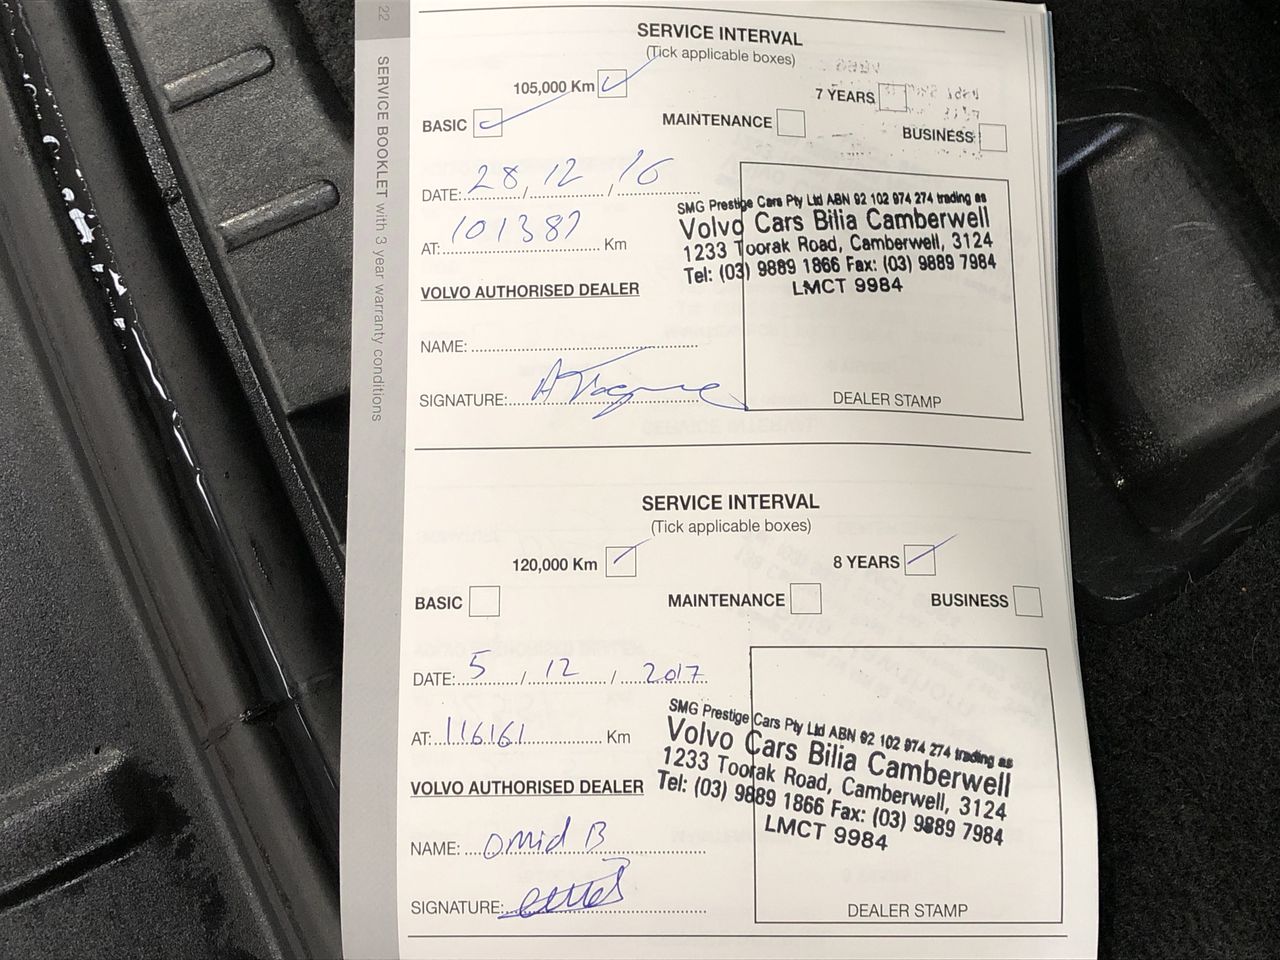 22
SERVICE BOOKLET with 3 year warranty conditions
SERVICE INTERVAL
(Tick applicable boxes)
105,000 Km
7 YEARS
BASIC
MAINTENANCE
BUSINESS
DATE: 28 / 12 / 16
AT: 101387 Km
VOLVO AUTHORISED DEALER
NAME:
SIGNATURE:
SMG Prestige Cars Pty Ltd ABN 92 102 974 274 trading as
Volvo Cars Bilia Camberwell
1233 Toorak Road, Camberwell, 3124
Tel: (03) 9889 1866 Fax: (03) 9889 7984
LMCT 9984
DEALER STAMP
SERVICE INTERVAL
(Tick applicable boxes)
120,000 Km
8 YEARS
BASIC
MAINTENANCE
BUSINESS
DATE: 5 / 12 / 2017
AT: 116161 Km
VOLVO AUTHORISED DEALER
NAME: Omid B
SIGNATURE:
SMG Prestige Cars Pty Ltd ABN 92 102 974 274 trading as
Volvo Cars Bilia Camberwell
1233 Toorak Road, Camberwell, 3124
Tel: (03) 9889 1866 Fax: (03) 9889 7984
LMCT 9984
DEALER STAMP